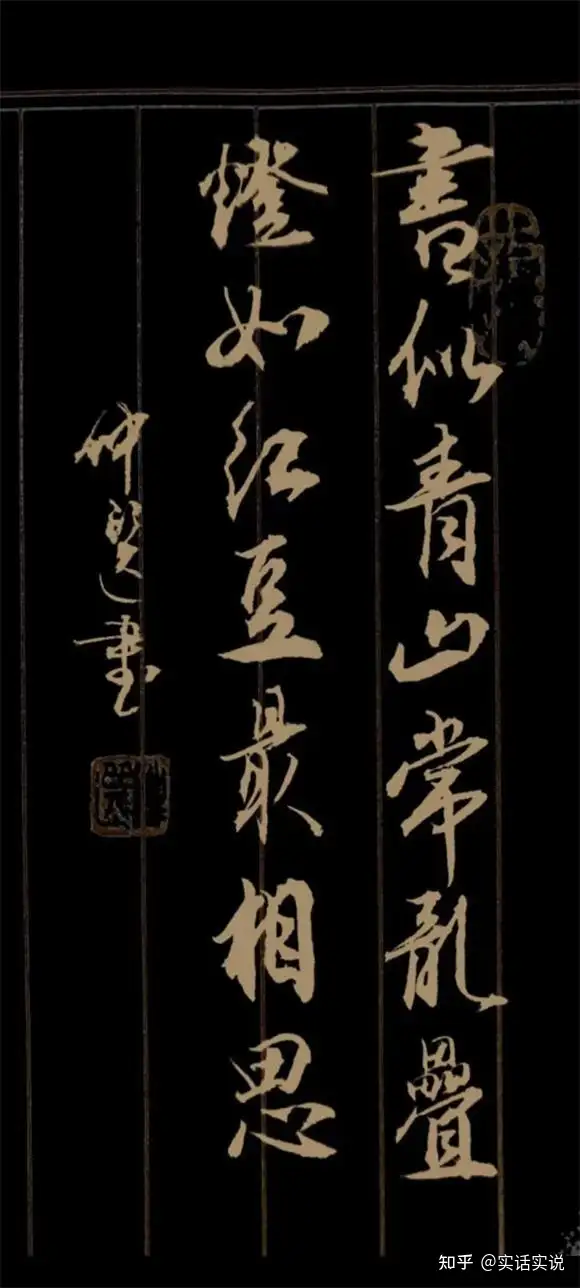 書似青山常亂疊
燈如红豆最相思
仲選書
知乎 @实话实说